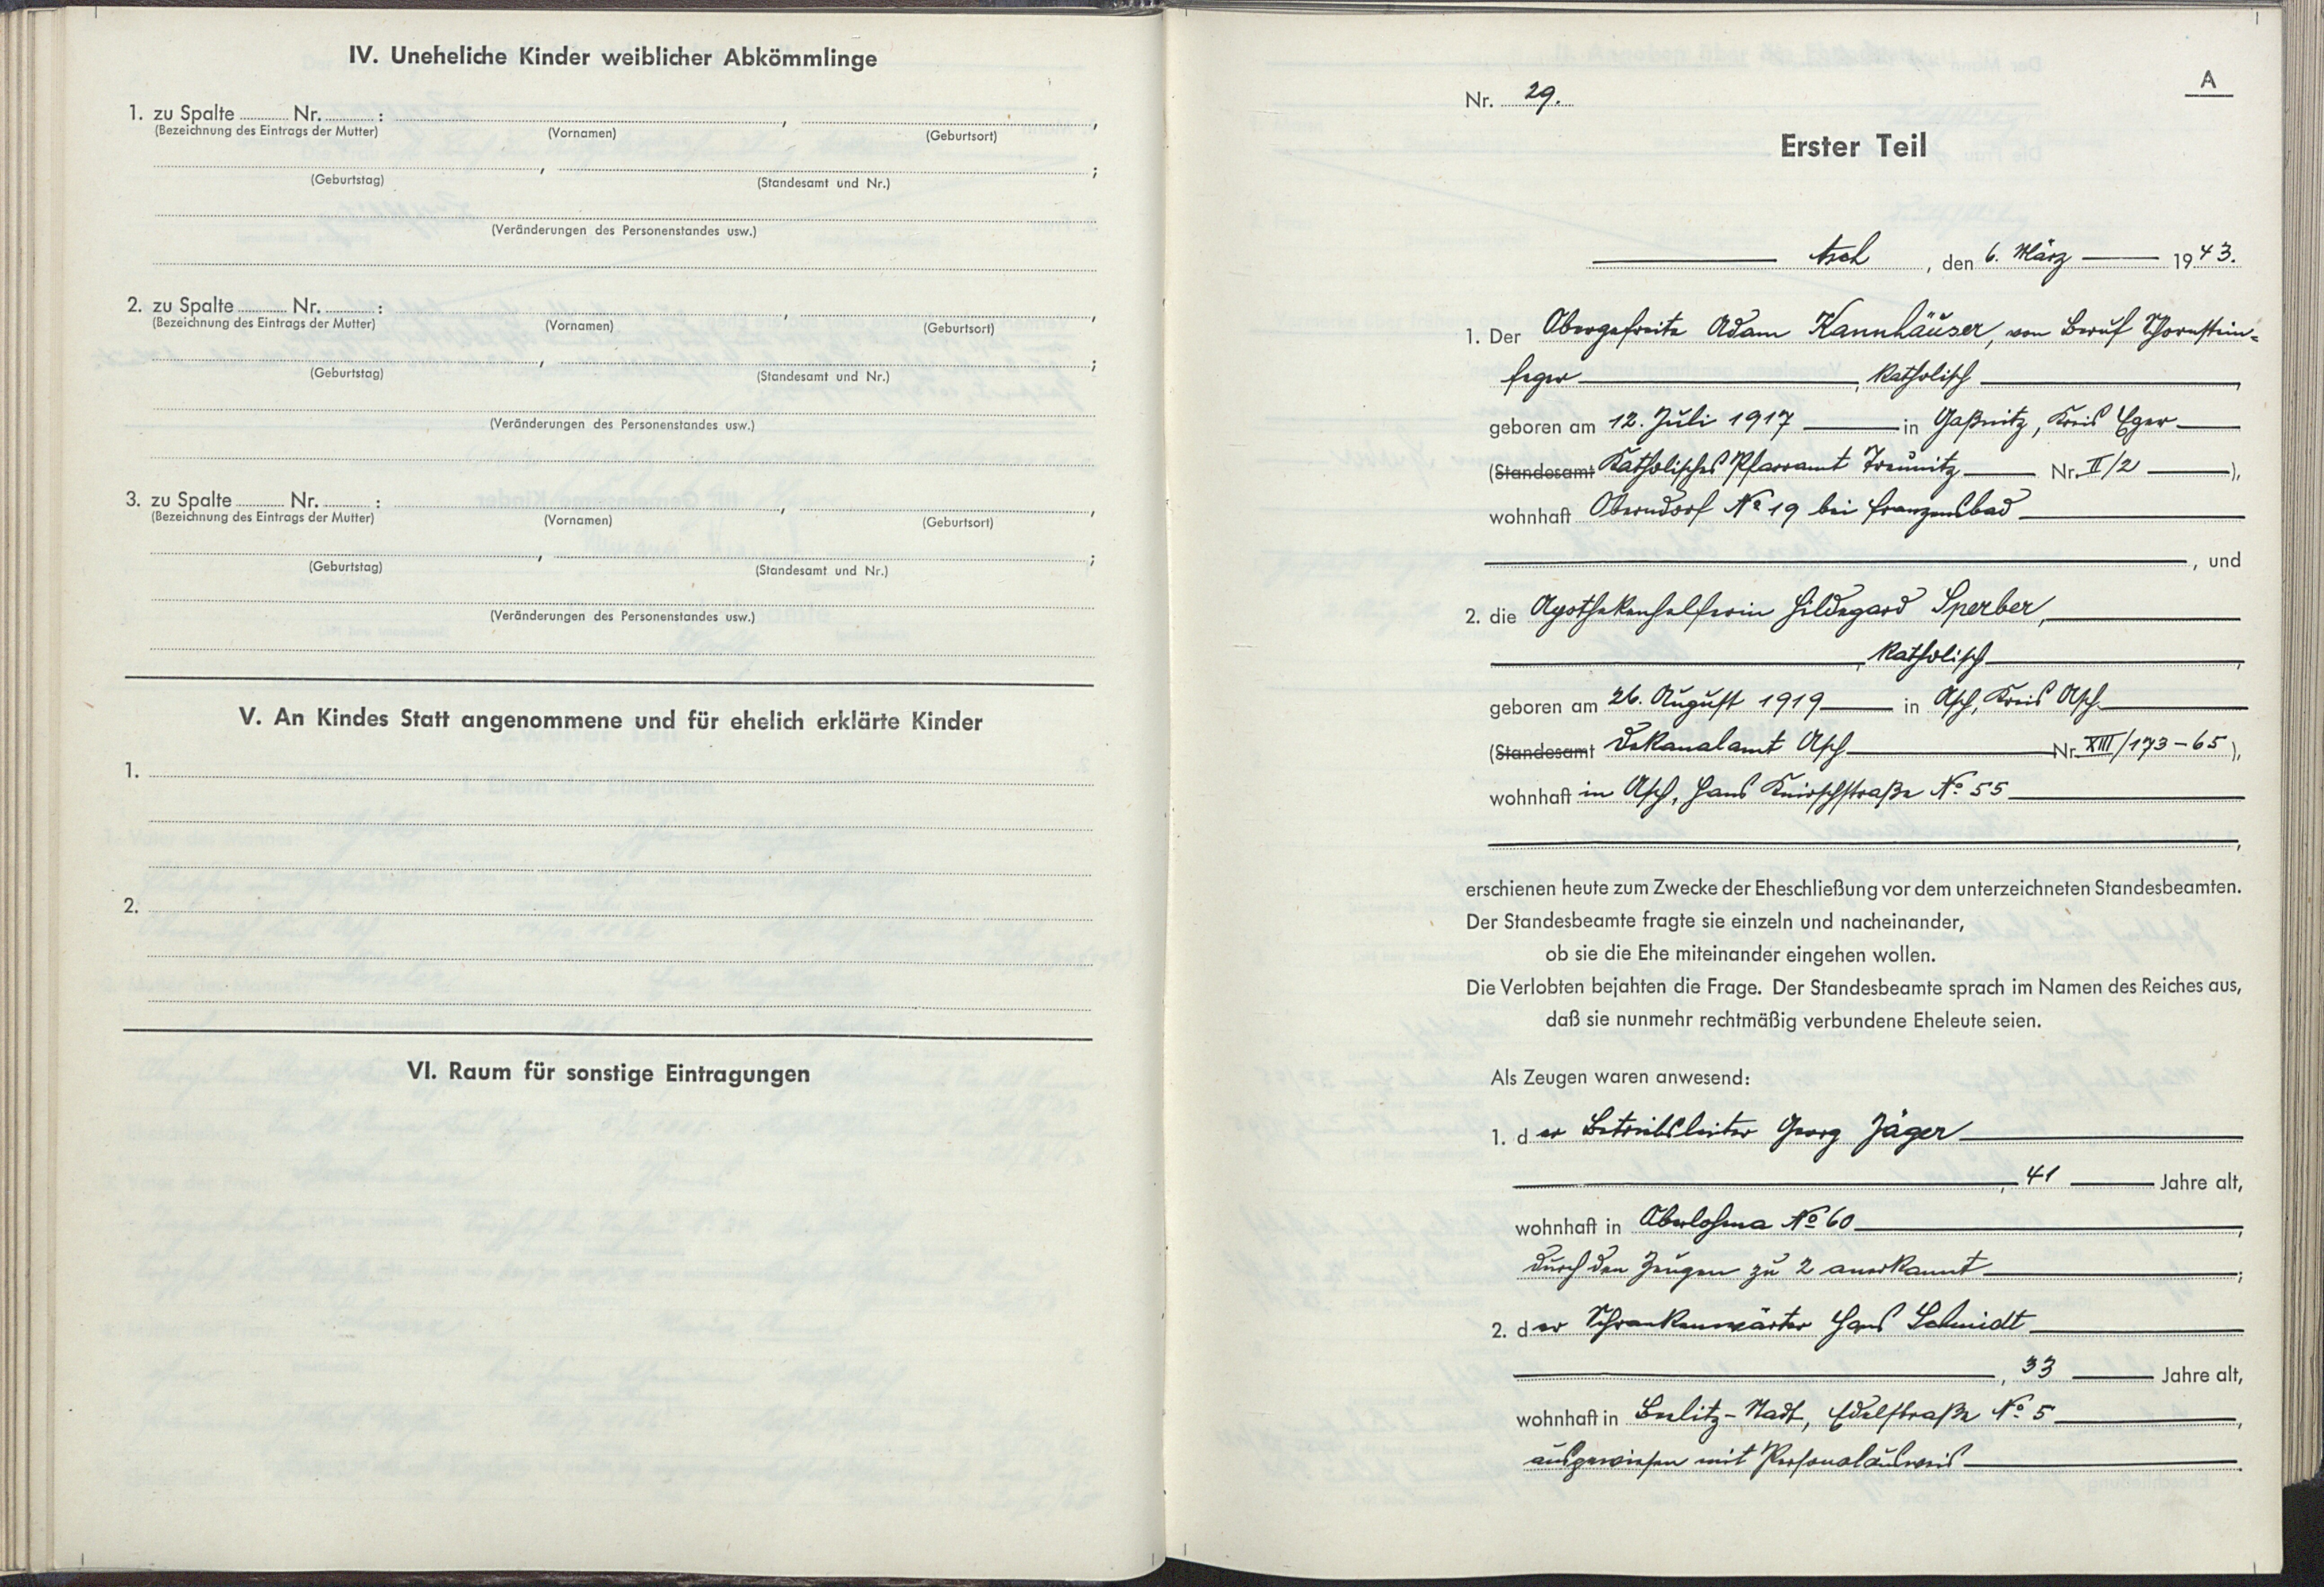 IV. Uneheliche Kinder weiblicher Abkömmlinge
1. zu Spalte Nr. : , ,
(Bezeichnung des Eintrags der Mutter) (Vornamen) (Geburtsort)
, ;
(Geburtstag) (Standesamt und Nr.)
(Veränderungen des Personenstandes usw.)
2. zu Spalte Nr. : , ,
(Bezeichnung des Eintrags der Mutter) (Vornamen) (Geburtsort)
, ;
(Geburtstag) (Standesamt und Nr.)
(Veränderungen des Personenstandes usw.)
3. zu Spalte Nr. : , ,
(Bezeichnung des Eintrags der Mutter) (Vornamen) (Geburtsort)
, ;
(Geburtstag) (Standesamt und Nr.)
(Veränderungen des Personenstandes usw.)
V. An Kindes Statt angenommene und für ehelich erklärte Kinder
1.
2.
VI. Raum für sonstige Eintragungen
A
Nr. 29.
Erster Teil
Asch, den 6. März 1943.
1. Der Obergefreite Adam Kannhäuser, von Beruf Schornstein-
feger, katholisch,
geboren am 12. Juli 1917 in Gaßnitz, Kreis Eger
(Standesamt Katholisches Pfarramt Treunitz Nr. II/2),
wohnhaft Oberndorf No 19 bei Franzensbad
, und
2. die Apothekenhelferin Hildegard Sperber,
, katholisch,
geboren am 26. August 1919 in Asch, Kreis Asch
(Standesamt Dekanalamt Asch Nr. XIII/173-65),
wohnhaft in Asch, Hans Knirschstraße No 55
,
erschienen heute zum Zwecke der Eheschließung vor dem unterzeichneten Standesbeamten.
Der Standesbeamte fragte sie einzeln und nacheinander,
ob sie die Ehe miteinander eingehen wollen.
Die Verlobten bejahten die Frage. Der Standesbeamte sprach im Namen des Reiches aus,
daß sie nunmehr rechtmäßig verbundene Eheleute seien.
Als Zeugen waren anwesend:
1. der Betriebsleiter Georg Jäger
, 41 Jahre alt,
wohnhaft in Oberlohma No 60,
durch den Zeugen zu 2 anerkannt;
2. der Schrankenwärter Hans Schmidt
, 33 Jahre alt,
wohnhaft in Stadt, No 5,
ausgewiesen mit Personalausweis.